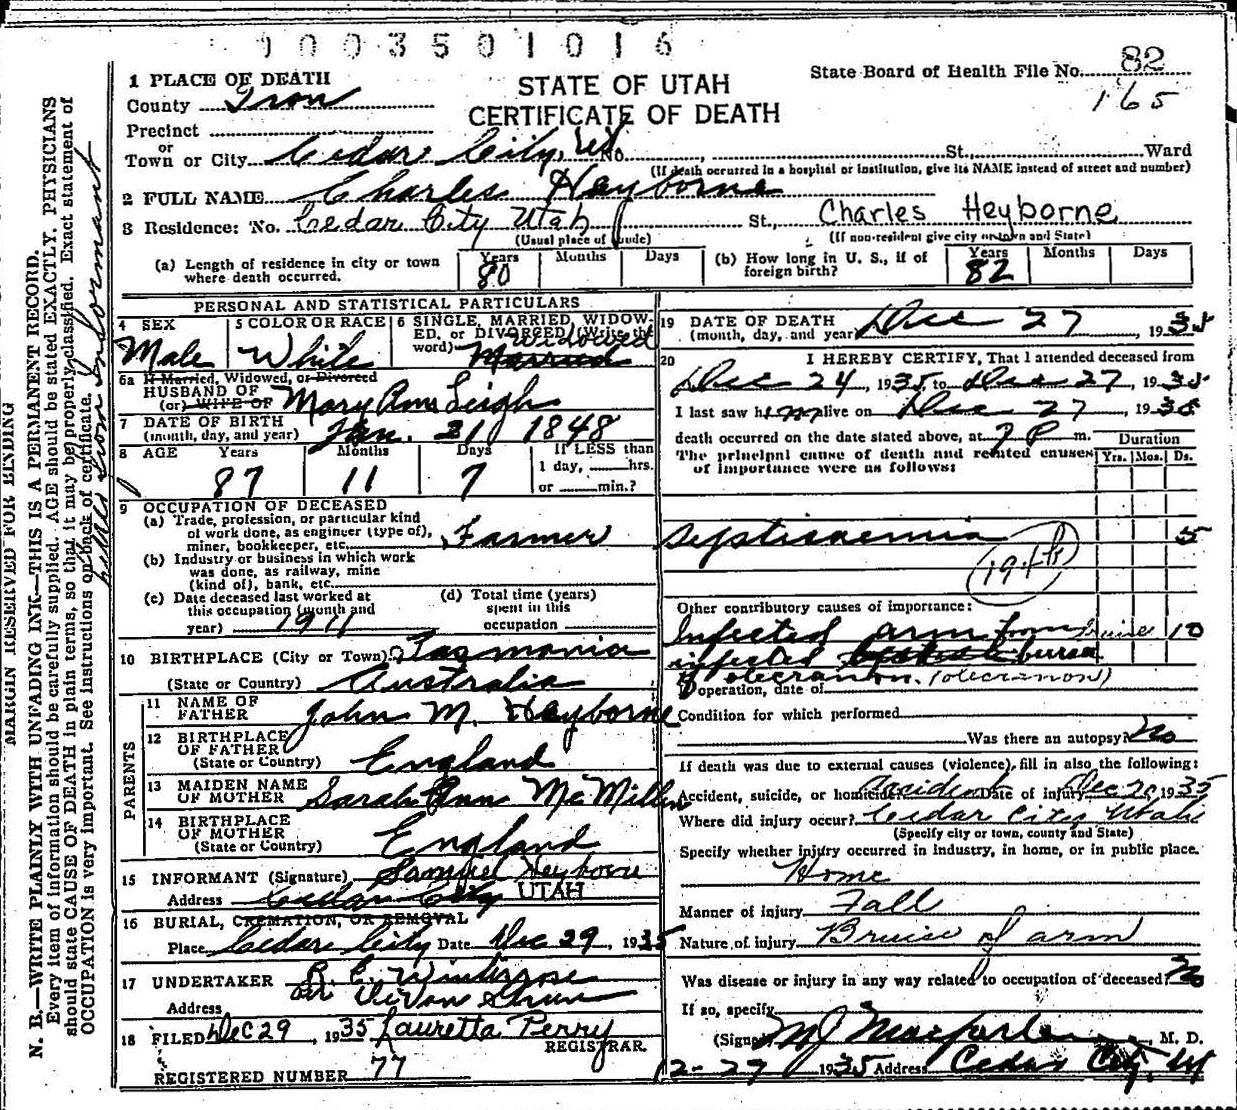 1003501016
STATE OF UTAH
CERTIFICATE OF DEATH
State Board of Health File No. 82
165
1 PLACE OF DEATH
County Iron
Precinct
or
Town or City Cedar City, Ut No. , St., Ward
(If death occurred in a hospital or institution, give its NAME instead of street and number)
2 FULL NAME Charles Heyborne
3 Residence: No. Cedar City Utah St., Charles Heyborne
(Usual place of abode) (If non-resident give city or town and State)
(a) Length of residence in city or town where death occurred. Years 80 Months Days
(b) How long in U. S., if of foreign birth? Years 82 Months Days
PERSONAL AND STATISTICAL PARTICULARS
4 SEX Male
5 COLOR OR RACE White
6 SINGLE, MARRIED, WIDOWED, OR DIVORCED (Write the word) Widowed Married
6a If Married, Widowed, or Divorced
HUSBAND OF
(or) WIFE OF Mary Ann Leigh
7 DATE OF BIRTH
(month, day, and year) Jan. 21 1848
8 AGE Years 87 Months 11 Days 7 If LESS than
1 day, hrs.
or min.?
9 OCCUPATION OF DECEASED
(a) Trade, profession, or particular kind
of work done, as engineer (type of),
miner, bookkeeper, etc. Farmer
(b) Industry or business in which work
was done, as railway, mine
(kind of), bank, etc.
(c) Date deceased last worked at
this occupation (month and
year) 1911
(d) Total time (years)
spent in this
occupation
10 BIRTHPLACE (City or Town) Tasmania
(State or Country) Australia
PARENTS
11 NAME OF
FATHER John M. Heyborne
12 BIRTHPLACE
OF FATHER
(State or Country) England
13 MAIDEN NAME
OF MOTHER Sarah Ann McMillen
14 BIRTHPLACE
OF MOTHER
(State or Country) England
15 INFORMANT (Signature) Samuel Heyborne
Address Cedar City UTAH
16 BURIAL, CREMATION, OR REMOVAL
Place Cedar City Date Dec 29, 1935
17 UNDERTAKER
Address
18 FILED Dec 29, 1935 Lauretta Perry
REGISTRAR.
REGISTERED NUMBER 77
19 DATE OF DEATH
(month, day, and year) Dec 27, 1935
20 I HEREBY CERTIFY, That I attended deceased from
Dec 24 1935 to Dec 27, 1935
I last saw him alive on Dec 27, 1935
death occurred on the date stated above, at 7 P m.
The principal cause of death and related causes
of importance were as follows:
Duration
Yrs. Mos. Ds.
Septisaemia 5
Other contributory causes of importance:
Infected arm from bruise 10
infected bursa
of olecranon. (olecranon)
If operation, date of
Condition for which performed
Was there an autopsy? No
If death was due to external causes (violence), fill in also the following:
Accident, suicide, or homicide accident Date of injury Dec 20, 1935
Where did injury occur? Cedar City Utah
(Specify city or town, county and State)
Specify whether injury occurred in industry, in home, or in public place.
Home
Manner of injury Fall
Nature of injury Bruise of arm
Was disease or injury in any way related to occupation of deceased? No
If so, specify
(Signed) M J Macfarlane, M. D.
12-27 1935 Address Cedar City, Ut
MARGIN RESERVED FOR BINDING
N. B.—WRITE PLAINLY WITH UNFADING INK—THIS IS A PERMANENT RECORD.
Every item of information should be carefully supplied. AGE should be stated EXACTLY. PHYSICIANS
should state CAUSE OF DEATH in plain terms, so that it may be properly classified. Exact statement of
OCCUPATION is very important. See instructions on back of certificate.
informant